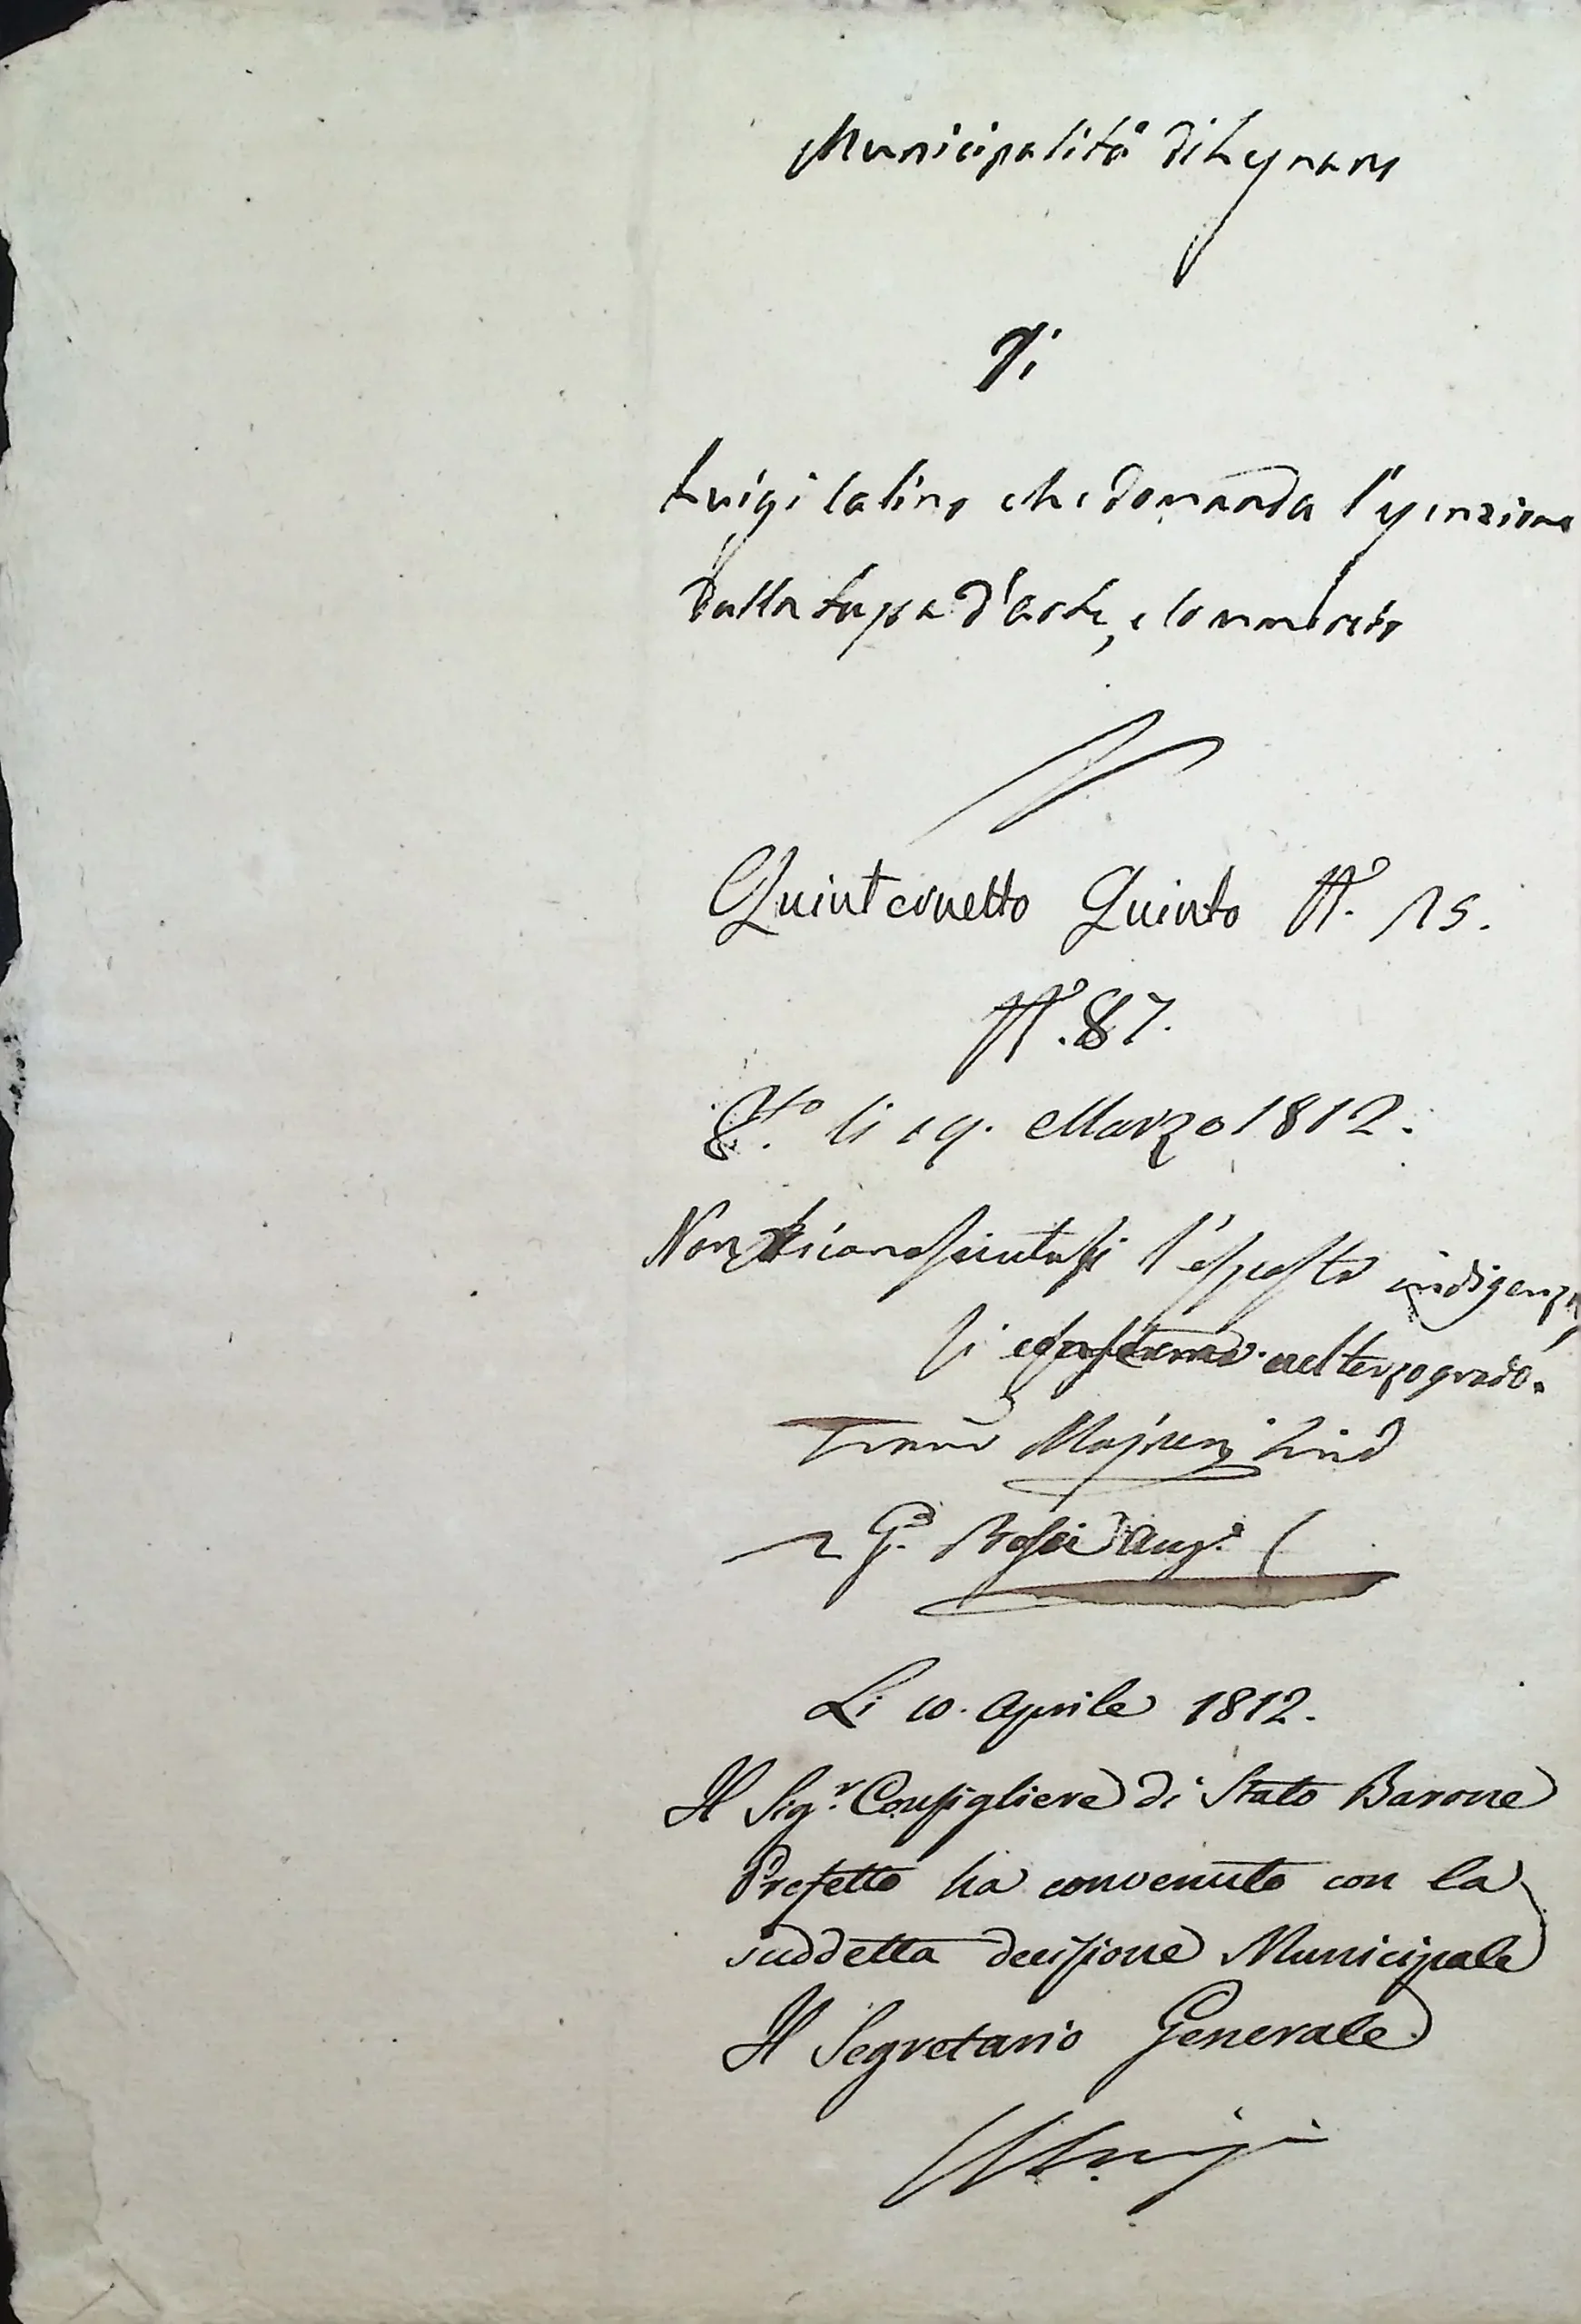 Municipalità di Legnaro
Di
Luigi Calino che domanda l'esenzione
dalla tassa d'arti, e Commercio
Quinternetto Quinto N.º 15.
N.º 87.
li 19. Marzo 1812.
Non riconosciutasi l'esposta indigenza,
si conferma nel terzo grado.
G. Rossi Agg.
Li 10. Aprile 1812.
Il Sig.r Consigliere di Stato Barone
Prefetto ha convenuto con la
suddetta decisione Municipale
Il Segretario Generale